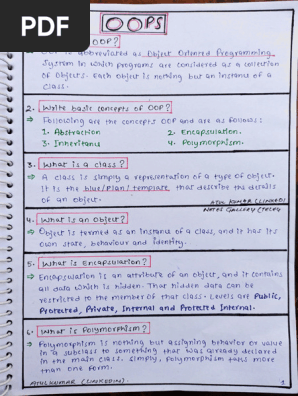 PDF
OOPS
OOP?
⇒ OOP is abbreviated as Object Oriented Programming
System in which programs are considered as a collection
of objects. Each object is nothing but an instance of a
class.
2. Write basic concepts of OOP?
⇒ Following are the concepts OOP and are as follows:
1. Abstraction 2. Encapsulation.
3. Inheritance 4. Polymorphism.
3. What is a class?
⇒ A class is simply a representation of a type of object.
It is the blue/plan/template that describe the details
of an object.
ATUL KUMAR (LINKEDIN)
NOTES GALLERY (TELEG)
4. What is an Object?
⇒ Object is termed as an instance of a class, and it has its
own state, behaviour and identity.
5. What is Encapsulation?
⇒ Encapsulation is an attribute of an object, and it contains
all data which is hidden. That hidden data can be
restricted to the member of that class. Levels are Public,
Protected, Private, Internal and Protected Internal.
6. What is Polymorphism?
⇒ Polymorphism is nothing but assigning behavior or value
in a subclass to something that was already declared
in the main class. Simply, Polymorphism takes more
than one form.
ATUL KUMAR (LINKEDIN).
1